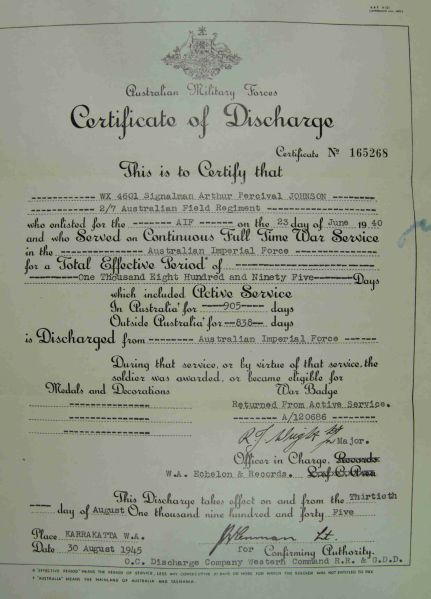 Australian Military Forces
Certificate of Discharge
Certificate Nº 165268
This is to Certify that
WX 4601 Signalman Arthur Percival JOHNSON
2/7 Australian Field Regiment
who enlisted for the AIF on the 23 day of June 1940
and who Served on Continuous Full Time War Service
in the Australian Imperial Force
for a Total Effective Period of
One Thousand Eight Hundred and Ninety Five Days
which included Active Service
In Australia for 905 days
Outside Australia for 838 days
is Discharged from Australian Imperial Force
During that service, or by virtue of that service, the
soldier was awarded, or became eligible for
Medals and Decorations War Badge
Returned From Active Service.
A/120686
Major.
Officer in Charge, Records
W.A. Echelon & Records. L of C Area
This Discharge takes effect on and from the Thirtieth
day of August One thousand nine hundred and forty Five
Place KARRAKATTA W.A.
Lt.
Date 30 August 1945 for Confirming Authority.
O.C. Discharge Company Western Command R.R. & G.D.D.
A "EFFECTIVE PERIOD" MEANS THE PERIOD OF SERVICE, LESS ANY CONSECUTIVE 21 DAYS OR MORE FOR WHICH THE SOLDIER WAS NOT ENTITLED TO PAY.
B "AUSTRALIA" MEANS THE MAINLAND OF AUSTRALIA AND TASMANIA.